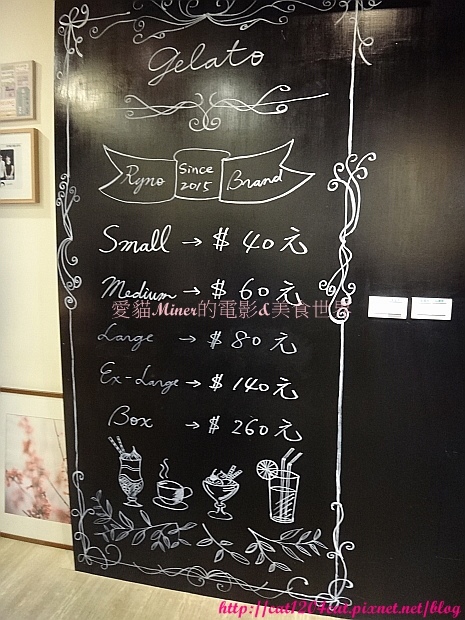 Gelato
Ryno Since 2015 Brand
Small → $ 40元
Medium → $ 60元
愛貓Miner的電影&美食世界
Large → $ 80元
Ex-Large → $ 140元
Box → $ 260元
http://cat1204cat.pixnet.net/blog